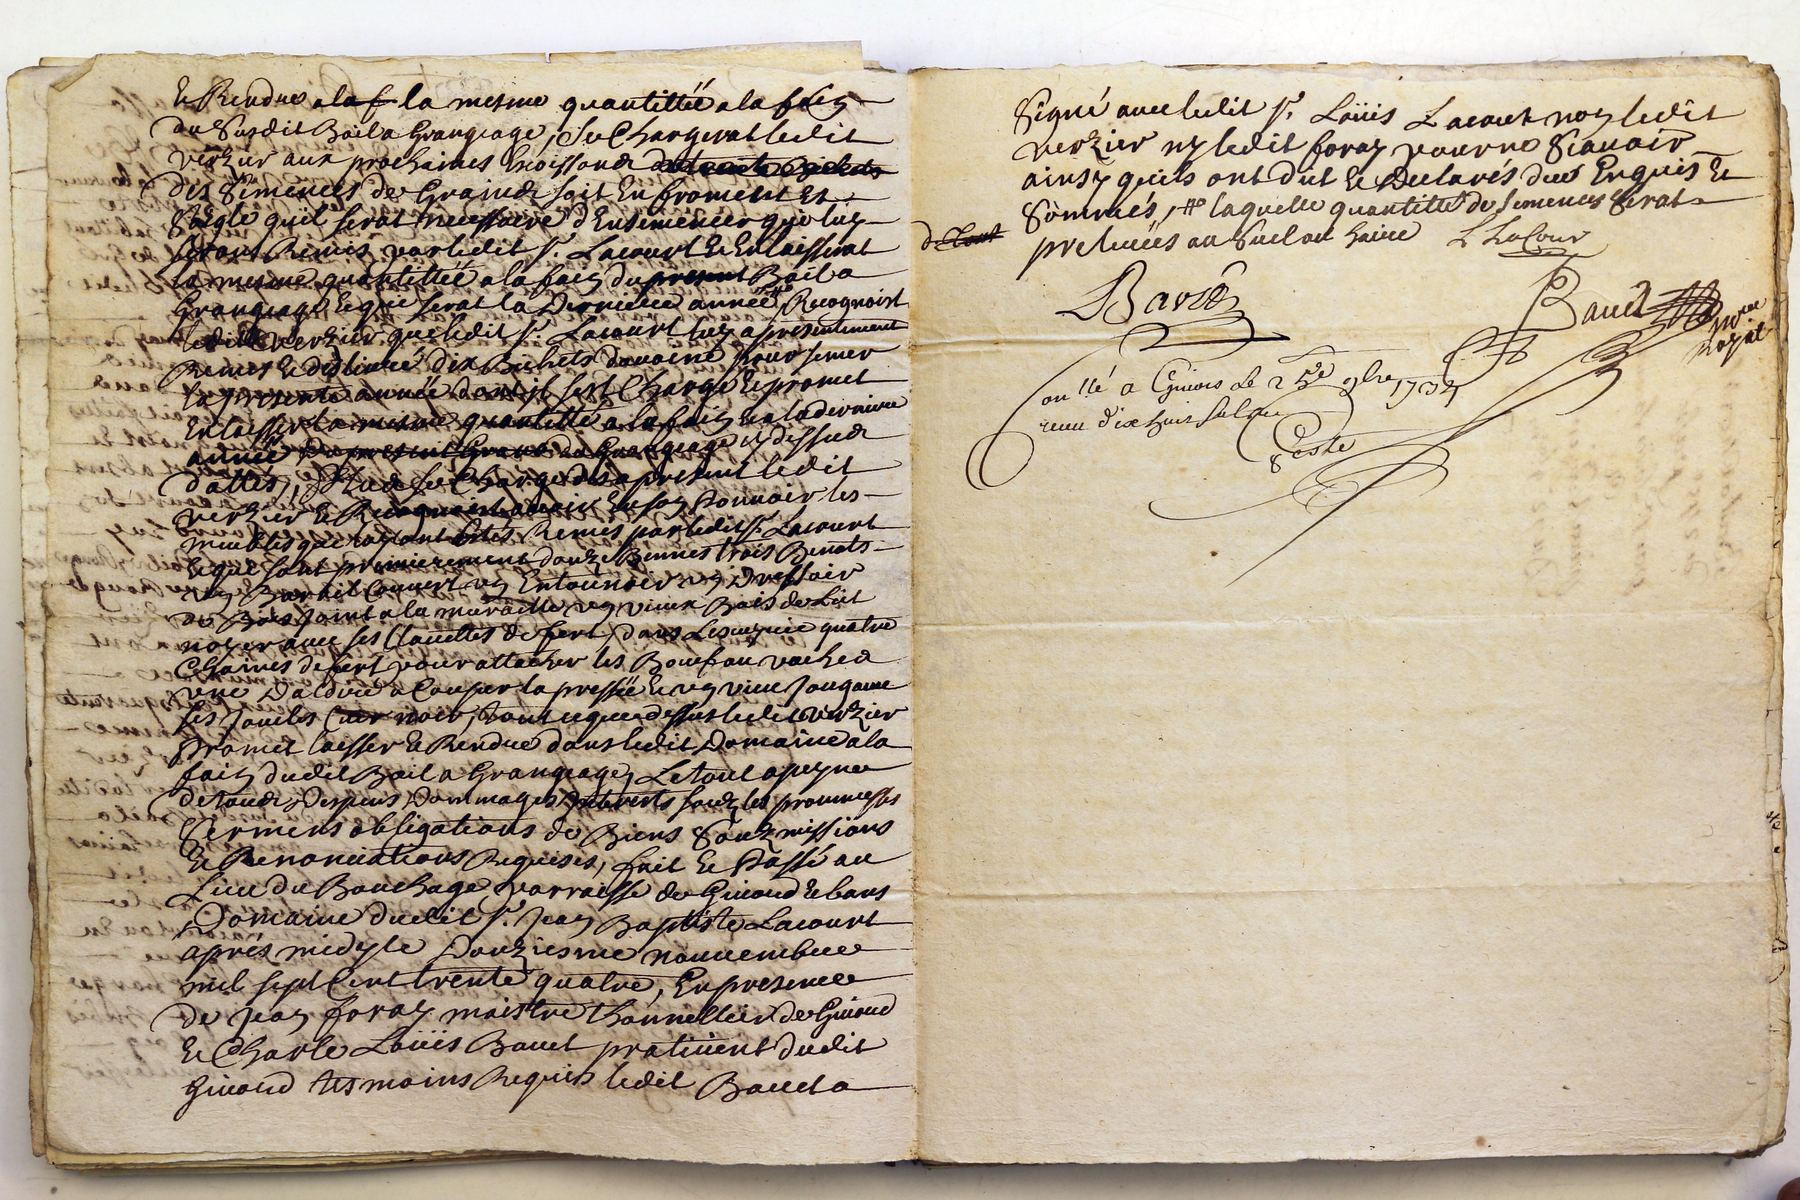 Et Rendre a la f la mesme quantittée a la fin
du Susdit Bail a Grangeage, Se Chargerat ledit
verzier aux prochaines
des Simences de Grains soit En froment Et
Seigle quil serat necessaire d'Ensemencer que luy
serons Remis par ledit Sr. Lacourt Et En laisserat
la mesme quantittée a la fain du present Bail a
Grangeage Et qui serat la Derniere année, Recognoist
ledit verzier que ledit Sr. Lacourt luy a presentement
Remis Et deslivré dix Bichets davoine pour semer
la presente année dont il sest Chargé Et promet
En laisser la mesme quantitté a la fain Et a la derniere
année Du present Grangeage cy dessus
dattés, Plus se Charge des a present ledit
verzier Et Recognoist avoir En son Pouvoir les
meubles que luy ont Estés Remis par ledit Sr. Lacourt
Et qui sont premierement douze Bennes trois Benots
un Entounoir un Dressoir
de Bois joint a la muraille un vieux Bois de Lict
noyer avec ses Clavettes de fert, dans Lescuyrie quatre
Chaines de fert pour attacher les Boeuf ou vaches
une a Couper la pressée Et un vieux
ses Cuir noir, tout ce que dessus ledit verzier
Promet laisser Et Rendre dans ledit Domaine a la
fain dudit Bail a Grangeage, Le tout a peyne
de tous Despens Dommages Interests souz les promesses
sermens obligations de Biens Souzmissions
Et Renonciations Requises, fait Et Passé au
Lieu du Bouchage parroisse de Givord Et dans
Domaine dudit Sr. Jean Baptiste Lacourt
apres midy le Douziesme nouvembre
mil sept Cent trente quatre, En presence
de Jean foray maistre thonnellier de Givord
Et Charle Loüis Bauct praticient dudit
Givord tesmoins Requis ledit Bauct a
Signé avec ledit Sr. Loüis Lacourt non ledit
verzier ny ledit foray pour ne Scavoir
ainsy quils ont dit Et Declarés de ce Enquis Et
Sommés, laquelle quantitté de semences Serat
prelevées au Suel ou haire L LaCour
Bauct
nore
Royal
Conllé a Givors Le 25e 9bre 1734
receu dix huis sols